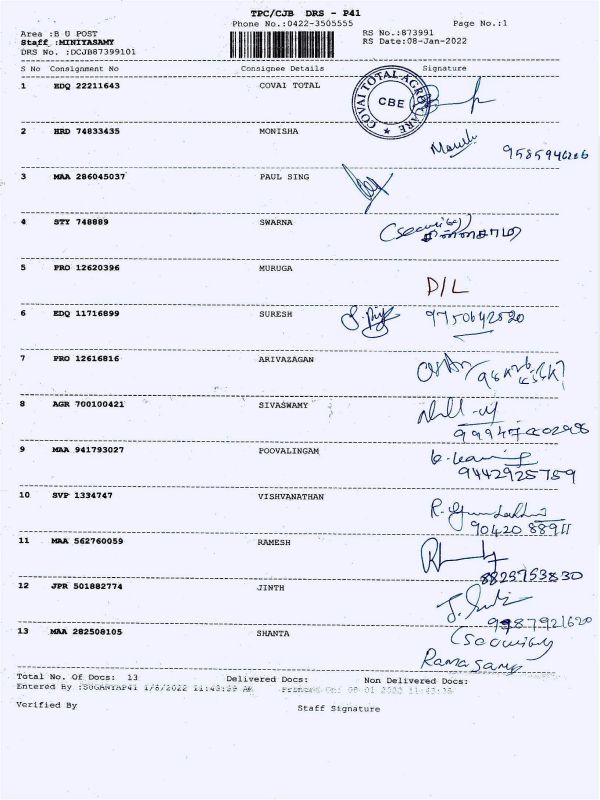 TPC/CJB DRS - P41
Phone No.:0422-3505555 Page No.:1
Area :B U POST RS No.:873991
Staff :MINIYASAMY RS Date:08-Jan-2022
DRS No. :DCJB87399101
S No Consignment No Consignee Details Signature
1 EDQ 22211643 COVAI TOTAL
COVAI TOTAL AGRO CARE
CBE
2 HRD 74833435 MONISHA
3 MAA 286045037 PAUL SING
4 STY 748889 SWARNA
(Security)
5 PRO 12620396 MURUGA
D/L
6 EDQ 11716899 SURESH 9750642520
7 PRO 12616816 ARIVAZAGAN
8 AGR 700100421 SIVASWAMY
9 MAA 941793027 POOVALINGAM
9442925759
10 SVP 1334747 VISHVANATHAN
90420 88911
11 MAA 562760059 RAMESH
8825753830
12 JPR 501882774 JINTH
9987921620
13 MAA 282508105 SHANTA (Security
Ramasamy
Total No. Of Docs: 13 Delivered Docs: Non Delivered Docs:
Entered By :SUGANYAP41 1/8/2022 11:43:29 AM Printed On: 08-01-2022 11:43:36
Verified By Staff Signature